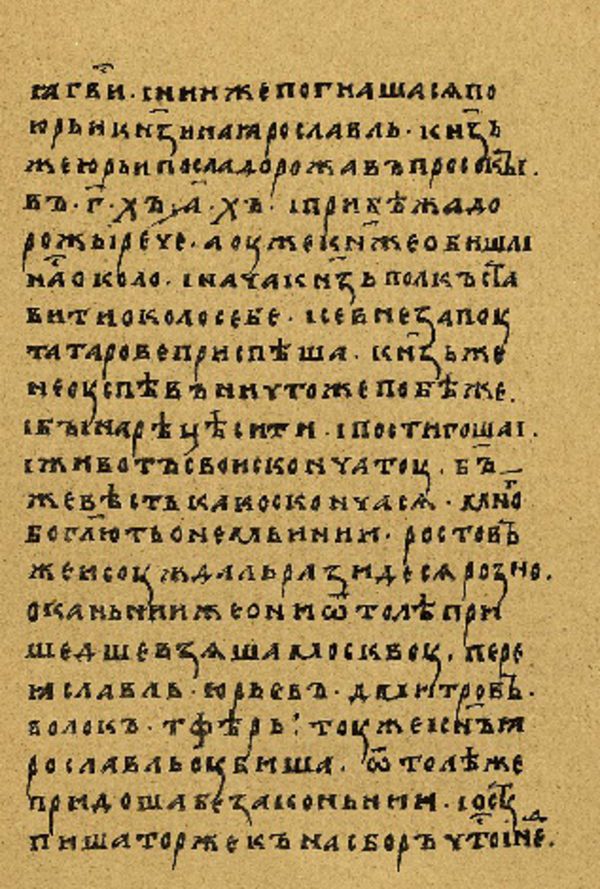 ꙗ г҃ви · ини иже погнашасѧ по
юрьи кнѧзи на ꙗрославль · кн҃зь
же юрьи посла дорожа въ просокꙑ ·
въ · г҃ · хъ · а҃ · хъ · і прибѣжа до
рожь і рече · а оуже кнѧже обишли
на҃ около · і нача кн҃зь полкъ ста
вити около себе · і се внезапоу
татарове приспѣша · кн҃зь же
не оуспѣвъ ничтоже побѣже ·
і бꙑ на рѣцѣ сити · і постигоша і ·
і животъ свои сконча тоу · бъ҃
же вѣсть како сконча сѧ · много
бо гл҃ють о немь инии · ростовъ
же и соуждаль разидесѧ розно ·
оканьнии же они ѿтолѣ при
шедше взѧша москвоу · пере
ꙗславль · юрьевъ · дмитровъ ·
волокъ · тфѣрь · тоу же и сн҃ъ ꙗ
рославль оубиша · ѿтолѣ же
придоша безаконьнии · і ѡстоу
пиша торжекъ на сборъ чт҃оі не ·